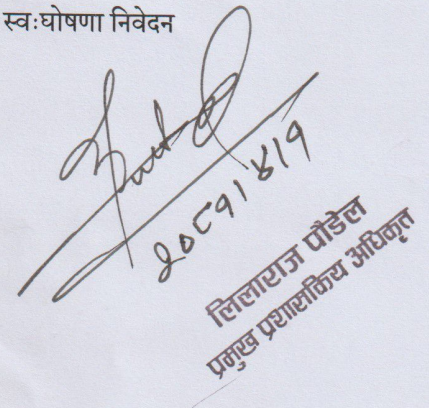 स्व:घोषणा निवेदन
२०८१।४।१
लिलाराज पौडेल
प्रमुख प्रशासकिय अधिकृत